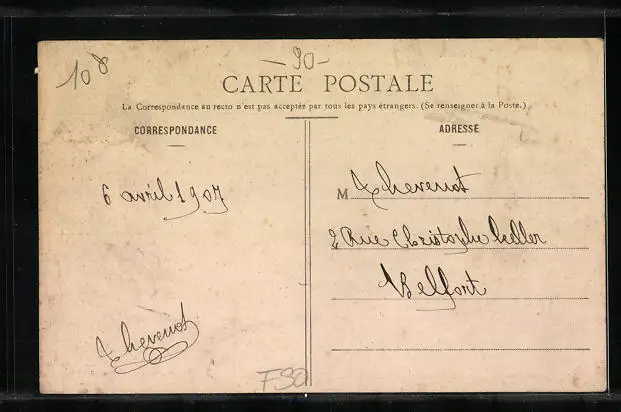 108
-90-
CARTE POSTALE
La Correspondance au recto n'est pas acceptée par tous les pays étrangers. (Se renseigner à la Poste.)
CORRESPONDANCE
6 avril 1907
Thevenot
ADRESSE
M Thevenot
2 Rue Christophe Keller
Belfort
F50